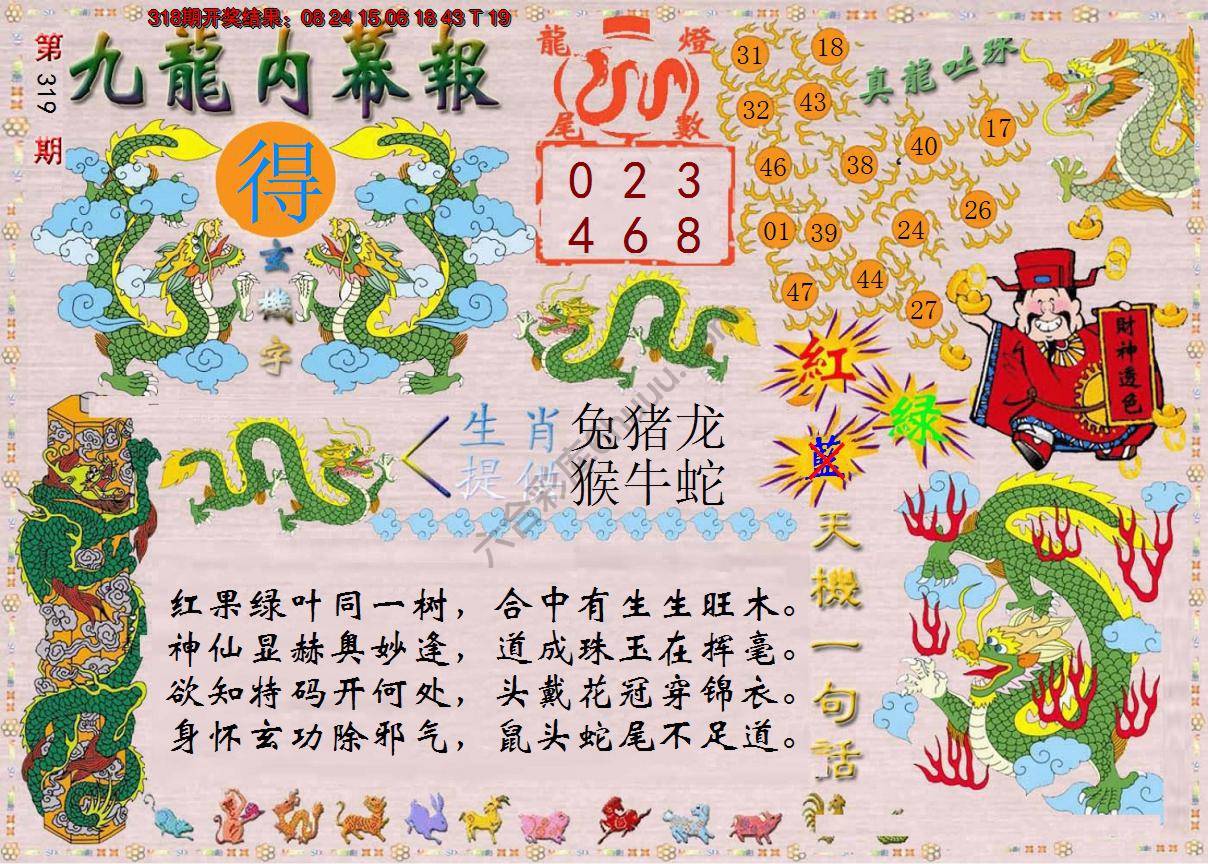 318期开奖结果：08 24 15.06 18 43 T 19
第319期
九龍内幕報
得
玄機字
龍燈尾數
0 2 3
4 6 8
真龍吐珠
31 18
32 43
46 38 40 17
01 39 24 26
47 44 27
財神透色
紅
綠
藍
生肖 兔猪龙
提供 猴牛蛇
天機一句話
红果绿叶同一树，合中有生生旺木。
神仙显赫奥妙逢，道成珠玉在挥毫。
欲知特码开何处，头戴花冠穿锦衣。
身怀玄功除邪气，鼠头蛇尾不足道。